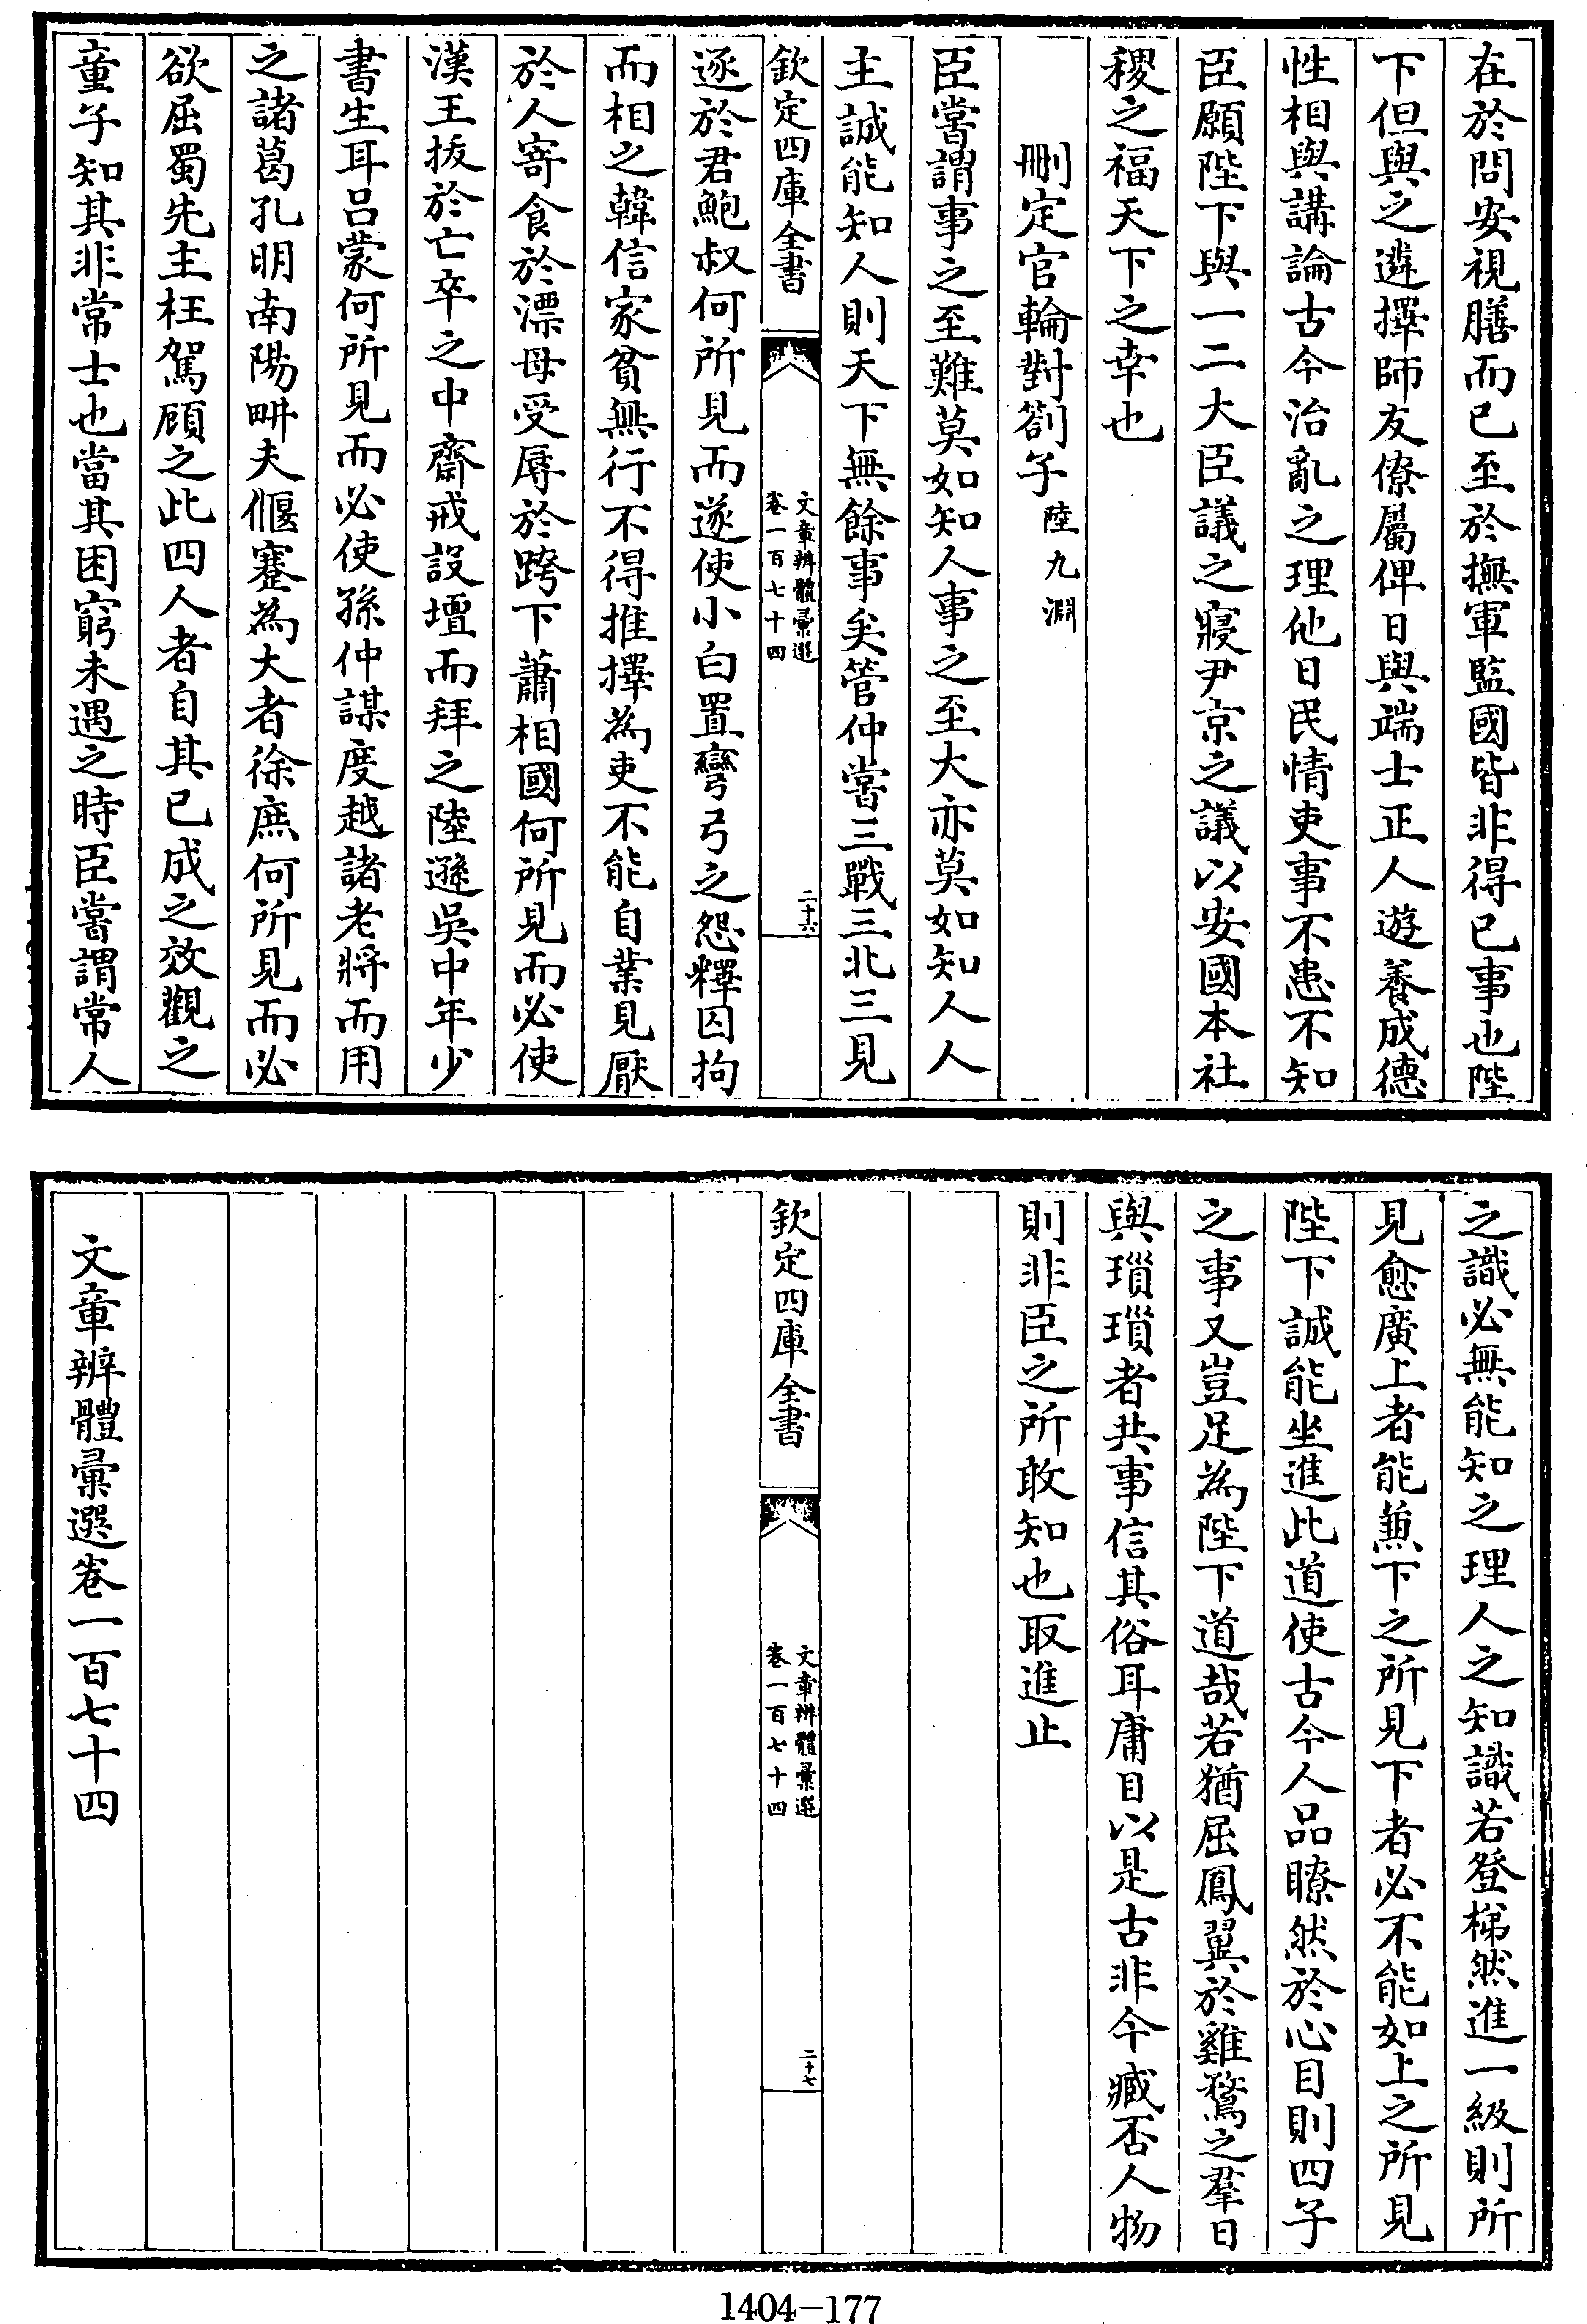 在於問安視膳而已至於撫軍監國皆非得已事也陛
下但與之遴擇師友僚屬俾日與端士正人遊養成德
性相與講論古今治亂之理他日民情吏事不患不知
臣願陛下與一二大臣議之寢尹京之議以安國本社
稷之福天下之幸也
刪定官輪對劄子陸九淵
臣嘗謂事之至難莫如知人事之至大亦莫如知人人
主誠能知人則天下無餘事矣管仲嘗三戰三北三見
欽定四庫全書
文章辨體彙選
卷一百七十四
二十六
逐於君鮑叔何所見而遂使小白置彎弓之怨釋囚拘
而相之韓信家貧無行不得推擇為吏不能自業見厭
於人寄食於漂母受辱於跨下蕭相國何所見而必使
漢王拔於亡卒之中齋戒設壇而拜之陸遜吳中年少
書生耳呂蒙何所見而必使孫仲謀度越諸老將而用
之諸葛孔明南陽畊夫偃蹇為大者徐庶何所見而必
欲屈蜀先主枉駕顧之此四人者自其已成之效觀之
童子知其非常士也當其困窮未遇之時臣嘗謂常人
之識必無能知之理人之知識若登梯然進一級則所
見愈廣上者能兼下之所見下者必不能如上之所見
陛下誠能坐進此道使古今人品瞭然於心目則四子
之事又豈足為陛下道哉若猶屈鳳翼於雞鶩之羣日
與瑣瑣者共事信其俗耳庸目以是古非今臧否人物
則非臣之所敢知也取進止
欽定四庫全書
文章辨體彙選
卷一百七十四
二十七
文章辨體彙選卷一百七十四
1404-177